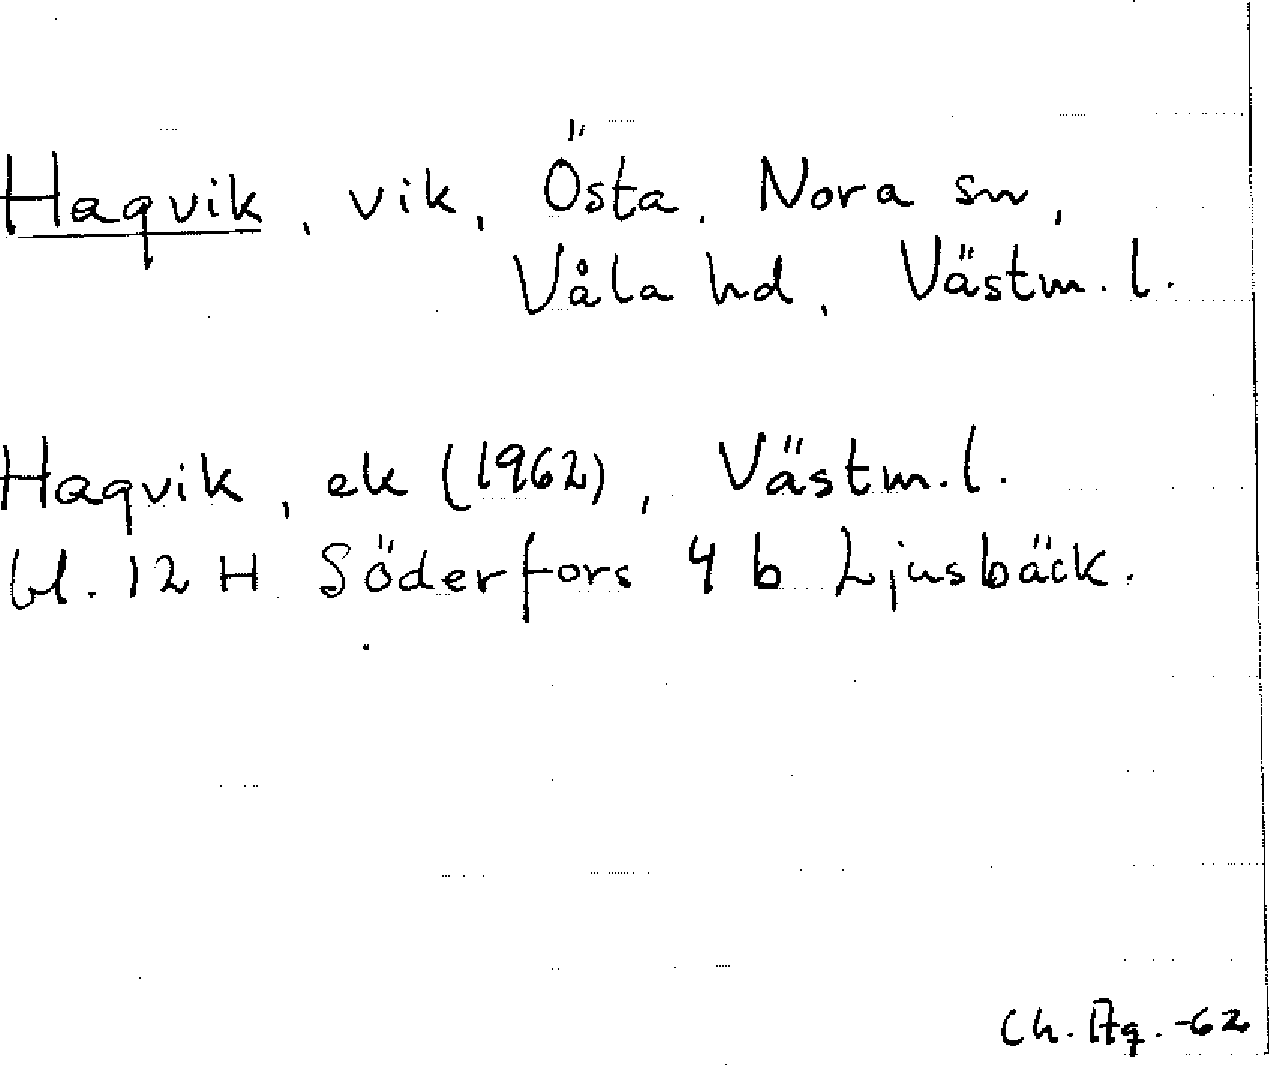 Haqvik, vik, Östa, Nora sn,
Våla hd, Västm. l.
Haqvik, ek (1962), Västm. l.
bl. 12 H Söderfors 4 b Ljusbäck.
Ch. Aq. -62